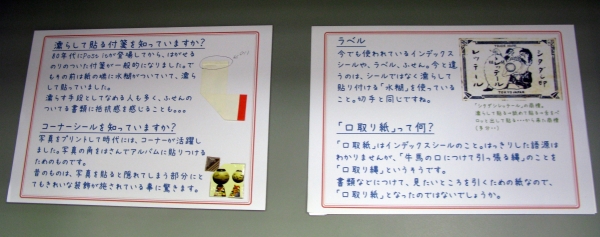 濡らして貼る付箋を知っていますか?
80年代にPost itが登場してから、はがせる
のりのついた付箋が一般的になりました。で
もその前は紙の端に水糊がついていて、濡ら
して貼っていました。
濡らす手段としてなめる人も多く、ふせんの
ついてる書類に抵抗感を感じることも。。。
コーナーシールを知っていますか?
写真をプリントして時代には、コーナーが活躍し
ました。写真の角をはさんでアルバムに貼りつける
ためのものです。
昔のものは、写真を貼ると隠れてしまう部分にと
てもきれいな装飾が施されている事に驚きます。
ラベル
今でも使われているインデックス
シールや、ラベル、ふせん。今と違
うのは、シールではなく濡らして
貼り付ける「水糊」を使っている
こと。切手と同じですね。
「口取り紙」って何?
「口取紙」はインデックスシールのこと。はっきりした語源は
わかりませんが、「牛馬の口につけて引っ張る縄」のことを
「口取り縄」というそうです。
書類などにつけて、見たいところを引くための紙なので、
「口取り紙」となったのではないでしょうか。